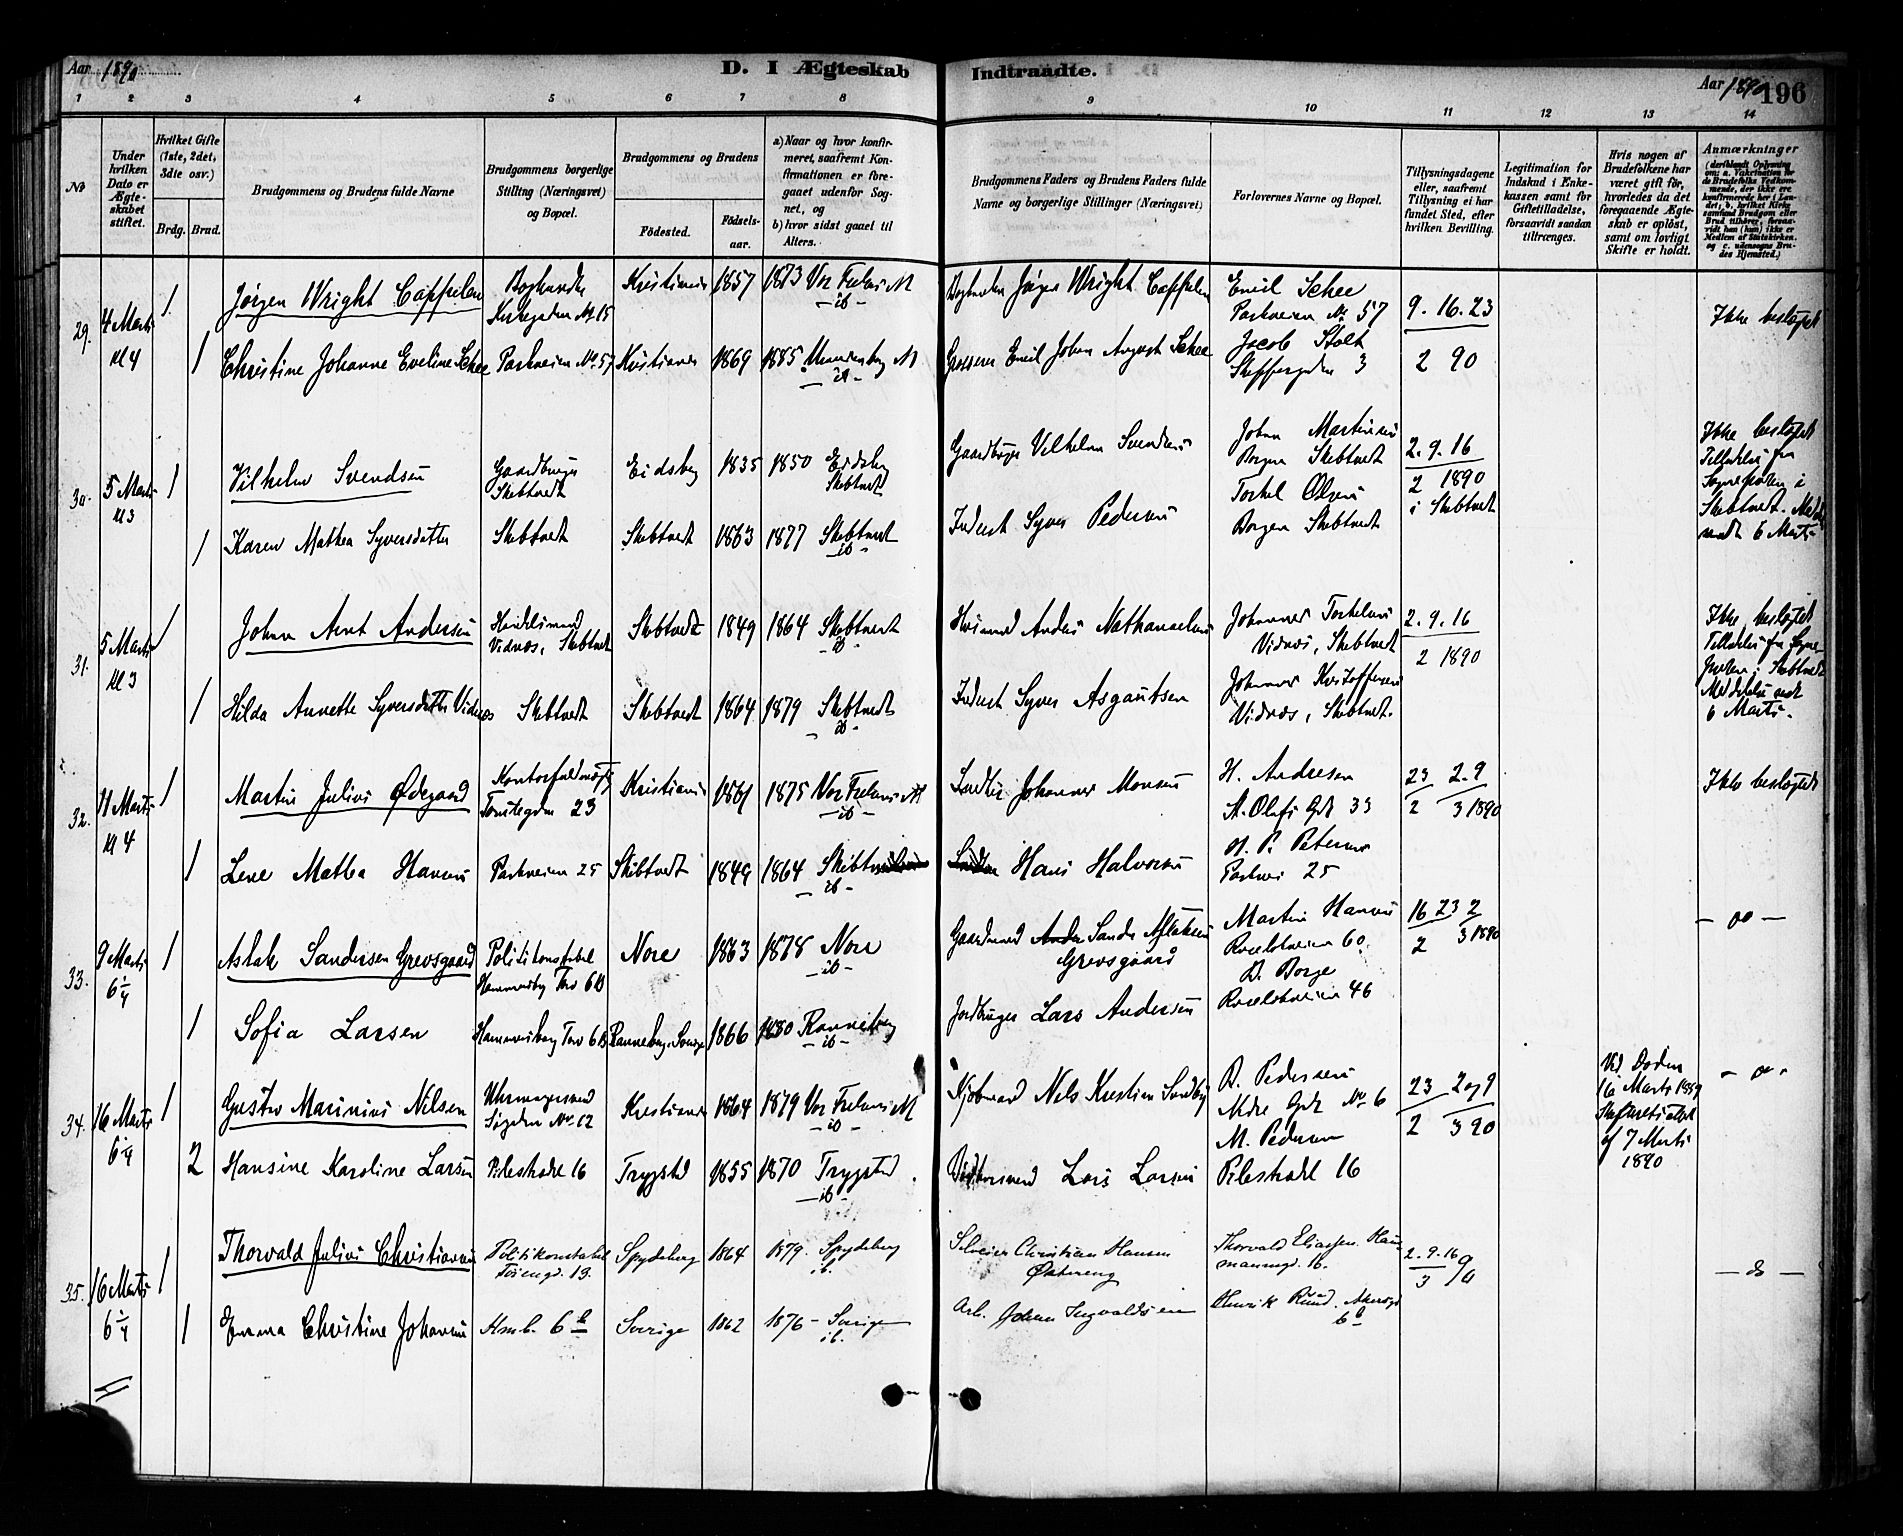 Aar 1890
D. I Ægteskab
Indtraadte.
Aar 1890 196
1 2 3 4 5 6 7 8
9 10 11 12 13 14
No
Under hvilken Dato er Ægteskabet stiftet.
Hvilket Gifte (1ste, 2det, 3die osv.)
Brdg. Brud.
Brudgommens og Brudens fulde Navne
Brudgommens borgerlige Stilling (Næringsvei) og Bopæl.
Brudgommens og Brudens
Födested.
Födselsaar.
a) Naar og hvor konfirmeret, saafremt Konfirmationen er foregaaet udenfor Sognet, og
b) hvor sidst gaaet til Alters.
Brudgommens Faders og Brudens Faders fulde Navne og borgerlige Stillinger (Næringsvei)
Forlovernes Navne og Bopæl.
Tillysningsdagene eller, saafremt Tillysning ei har fundet Sted, efter hvilken Bevilling.
Legitimation for Indskud i Enkekassen samt for Giftetilladelse, forsaavidt saadan tiltrænges.
Hvis nogen af Brudefolkene har været gift för, hvorledes da det foregaaende Ægteskab er oplöst, samt om lovligt Skifte er holdt.
Anmærkninger (deriblandt Oplysning om: a. Vakcination for de Brudefolks Vedkommende, der ikke ere konfirmerede her i Landet; b. hvilket Kirkesamfund Brudgom eller Brud tilhörer, forsaavidt han (hun) ikke er Medlem af Statskirken, og c. udensogns Brudes Hjemsted.)
29. 4 Marts Kl 4
1 Jørgen Wright Cappelen
Boghandler Kirkegaden No 15
Kristiania 1857 1873 Vor Frelsers M
- ib -
Boghandler Jørgen Wright Cappelen
Emil Schee
Parkveien No 57
9. 16. 23
2 90
Ikke beslægtet
1 Christine Johanne Eveline Schee
Parkveien No 57 Kristiania 1869 1885
- ib -
Grosserer Emil Johan August Schee
Jacob Stolt
Skippergaden 3
30. 5 Marts Kl 3
1 Vilhelm Svendsen
Gaardbruger Skibtvedt
Eidsberg 1835 1850 Eidsberg
Skibtvedt
Gaardbruger Vilhelm Svendsen
Johan Martinsen
Borgen Skibtvedt
2. 9. 16
2 1890
i Skibtvedt
Ikke beslægtet
Tilladelse fra
Sognepresten i
Skibtvedt. Med
6 Marts
1 Karen Mathea Syversdatter
Skibtvedt Skibtvedt 1863 1877 Skibtvedt
- ib -
Inderst Syver Pedersen
Torkel Olsen
Borgen Skibtvedt
31. 5 Marts Kl 3
1 Johan Arnt Andersen
Handelsmand
Vidnæs, Skibtvedt
Skibtvedt 1849 1864 Skibtvedt
- ib -
Husmand Anders Nathanaelsen
Johannes Torkelsen
Vidnæs, Skibtvedt
2. 9. 16
2 1890
Ikke beslægtet
Tilladelse fra Sogne-
presten i Skibtvedt
Meddelelse sendt
6 Marts.
1 Hilda Annette Syversdatter Vidnæs
Skibtvedt Skibtvedt 1864 1879 Skibtvedt
- ib -
Inderst Syver Asgautsen
Johannes Kristoffersen
Vidnæs, Skibtvedt.
32. 11 Marts Kl 4
1 Martin Julius Ødegaard
Kontorfuldmægtig
Tomtegden 23
Kristiania 1861 1875 Vor Frelsers M
- ib -
Johannes Monsen
H. Andresen
St. Olafs Gd 33
23 2.9
2 3 1890
Ikke beslægtet
1 Lene Mathea Hansen
Parkveien 25 Skibtvedt 1849 1864 Skibtvedt
- ib -
Hans Halvorsen
H. P. Petersen
Parkvei 25
33. 9 Marts 6 1/4
1 Aslak Sandersen Grevsgaard
Politikonstabel
Hammersborg Torv 6B
Nore 1863 1878 Nore
- ib -
Gaardmand Sander Aslaksen
Grevsgaard
Martin Hansen
60
16 23 2
2 3 1890
- do -
1 Sofia Larsen
Hammersborg Torv 6B Ranneberg Sverige 1866 1880 Ranneberg
- ib -
Jordbruger Lars Andersen
B. Borge
46
34. 16 Marts 6 1/4
1 Gustav Marinius Nilsen
Uhrmagersvend
No. 12
Kristiania 1864 1879 Vor Frelsers M
- ib -
Kjøbmand Nils Kristian Sandby
B. Pedersen
Nedre Gade No 6
23 2 og 9
2 3 90
Ved Døden
16 Marts 1889
Skifteattest
af 7 Marts
1890
- do -
2 Hansine Karoline Larsen
Pilestrædet 16 Trygstad 1855 1870 Trygstad
- ib -
Lars Larsen
M. Pedersen
Pilestrædet 16
35. 16 Marts 6 1/4
1 Thorvald Julius Christiansen
Politikonstabel
13.
Spydeberg 1864 1879. Spydeberg
ib.
Selveier Christian Hansen
Østereng
Thorvald Eliassen. Haus-
mannsgd. 16.
2. 9. 16
3 90
- do -
1 Emma Christine Johansen
Hmb. 6 b Sverige 1862 1876 - Sverige
ib.
Arb. Johan Ingvaldsen
Henrik Rund. Akersgd
6 b